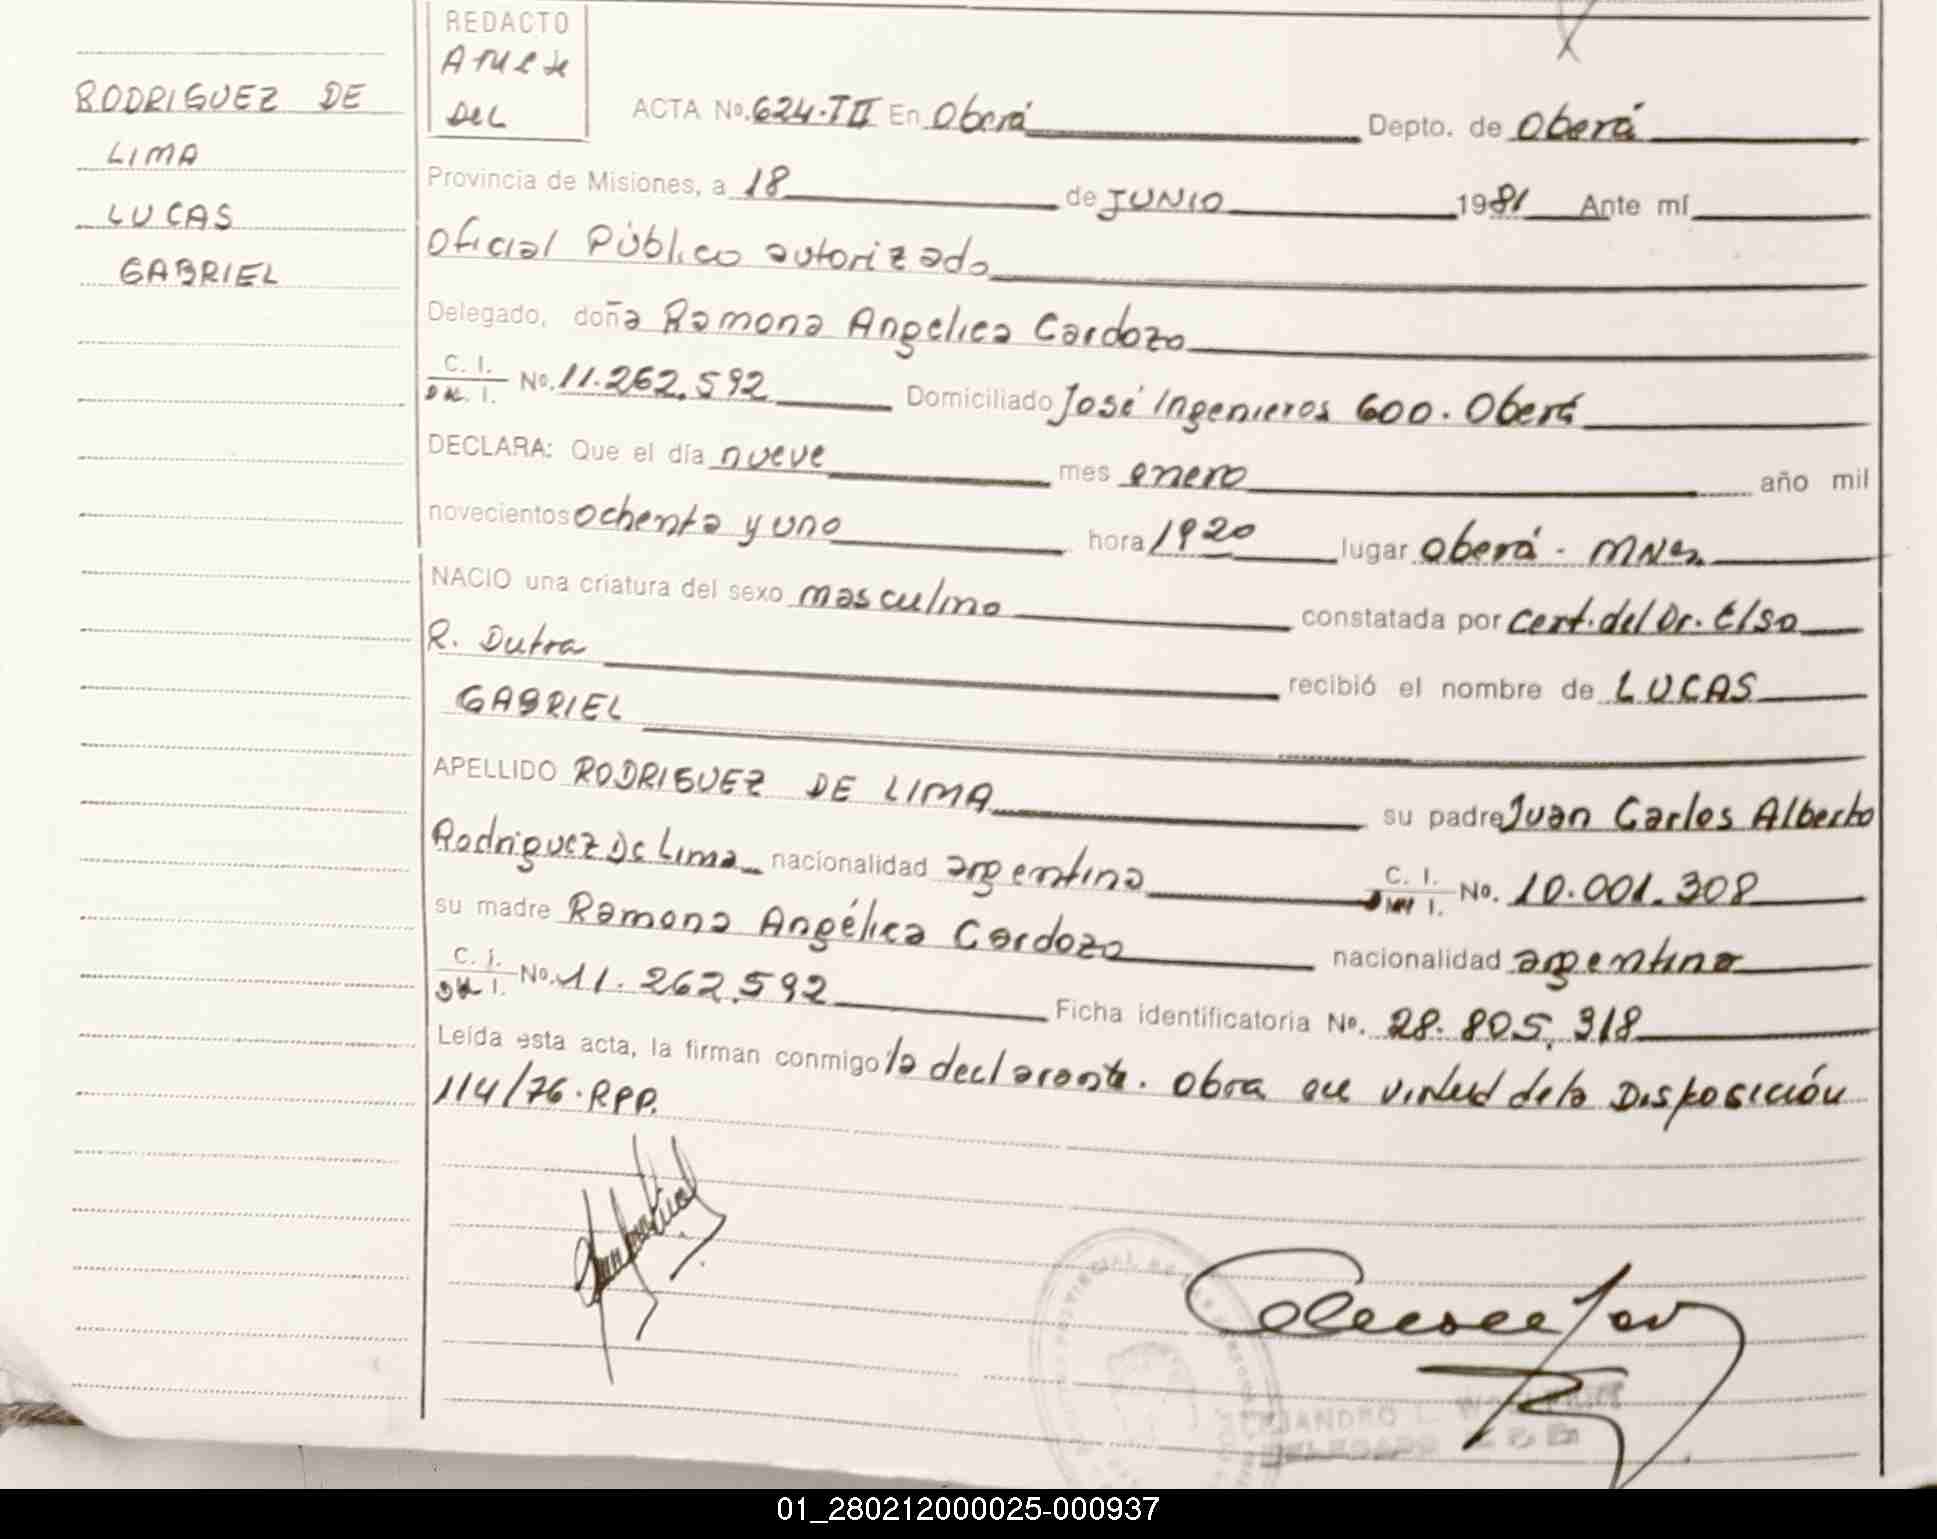 REDACTO
RODRIGUEZ DE
LIMA
LUCAS
GABRIEL
DEL
ACTA No. 624-T II En Oberá Depto. de Oberá
Provincia de Misiones, a 18 de JUNIO 1981 Ante mí
Oficial Público autorizado
Delegado, doña Ramona Angelica Cardozo
C. I.
D N. I. No. 11.262.592 Domiciliado José Ingenieros 600. Oberá
DECLARA: Que el día nueve mes enero año mil
novecientos ochenta y uno hora 1920 lugar Oberá - MNes.
NACIO una criatura del sexo masculino constatada por Cert. del Dr. Elso
R. Dutra recibió el nombre de LUCAS
GABRIEL
APELLIDO RODRIGUEZ DE LIMA su padre Juan Carlos Alberto
Rodriguez De Lima nacionalidad argentina C. I. No. 10.001.308
su madre Ramona Angélica Cardozo nacionalidad argentina
C. I.
D N I. No. 11.262.592 Ficha identificatoria No. 28.805.318
Leída esta acta, la firman conmigo la declarante. Obra en virtud de la Disposición
114/76. RPP.
DELEGADO
01_280212000025-000937